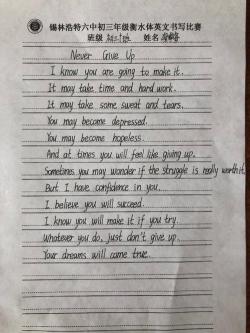 锡林浩特六中初三年级衡水体英文书写比赛
班级 姓名
Never Give Up
I know you are going to make it.
It may take time and hard work.
It may take some sweat and tears.
You may become depressed.
You may become hopeless.
And at times you will feel like giving up.
Sometimes you may wonder if the struggle is really worth it.
But I have confidence in you.
I believe you will succeed.
I know you will make it if you try.
Whatever you do, just don't give up.
Your dreams will come true.